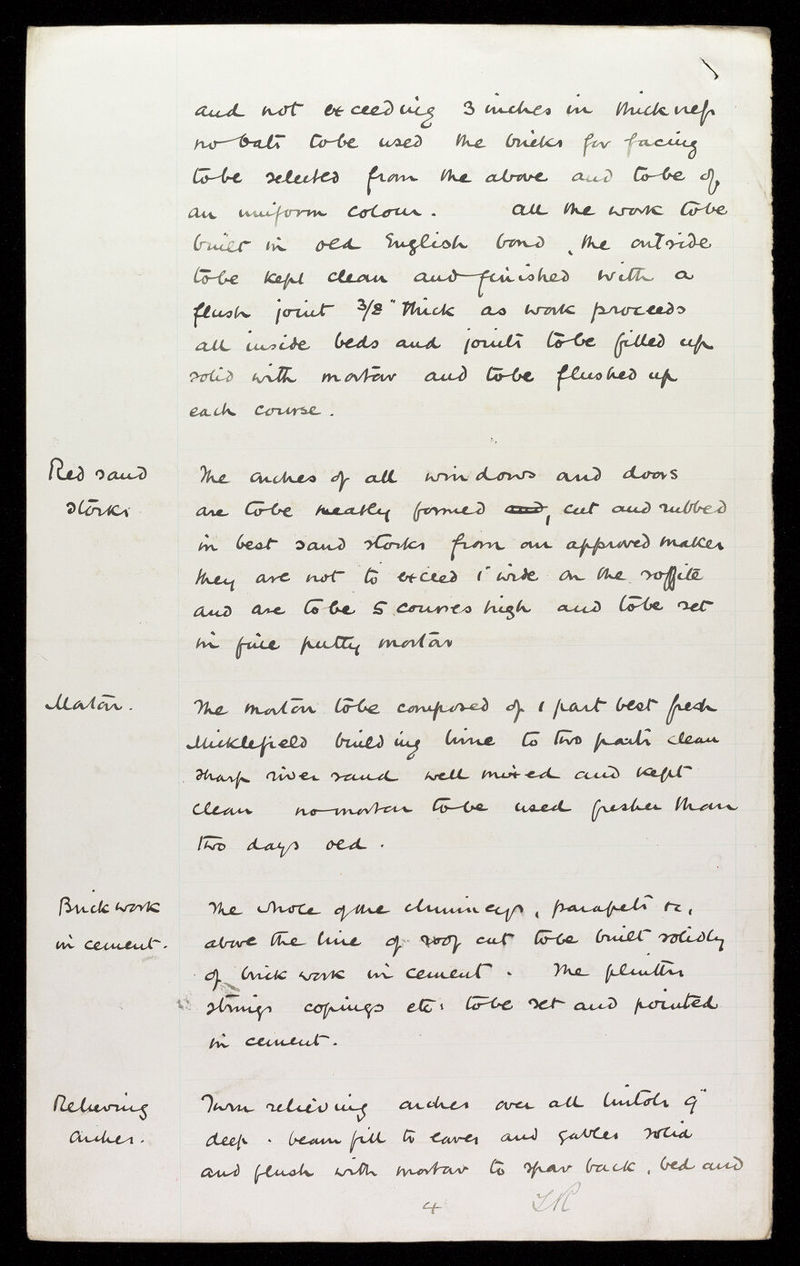 and not exceeding 3 inches in thickness
no bats to be used the bricks for facing
to be selected from the above and to be of
an uniform colour. all the work to be
built in old English bond, the outside
to be kept clean and finished with a
flush joint 3/8" thick as work proceeds
all inside beds and joints to be filled up
solid with mortar and to be flushed up
each course.
Red sand
stocks
The arches of all windows and doors
are to be neatly formed and, cut and rubbed
in best sand stocks from an approved maker
they are not to exceed 1" wide on the soffite
and are to be 5 courses high and to be set
in fine putty mortar
Mortar.
The mortar to be composed of 1 part best fresh
Micklefield building lime to two parts clean
sharp river sand well mixed and kept
clean no mortar to be used fresher than
two days old.
Brickwork
in cement.
The whole of the chimneys, parapets &c,
above the line of roof cut to be built solidly
of brick work in cement. The plinths
strings copings etc. to be set and pointed
in cement.
Relieving
Arches.
Turn relieving arches over all lintols 9"
deep. beam fill to eaves and gables solid
and flush with mortar to spar back, bed and
4